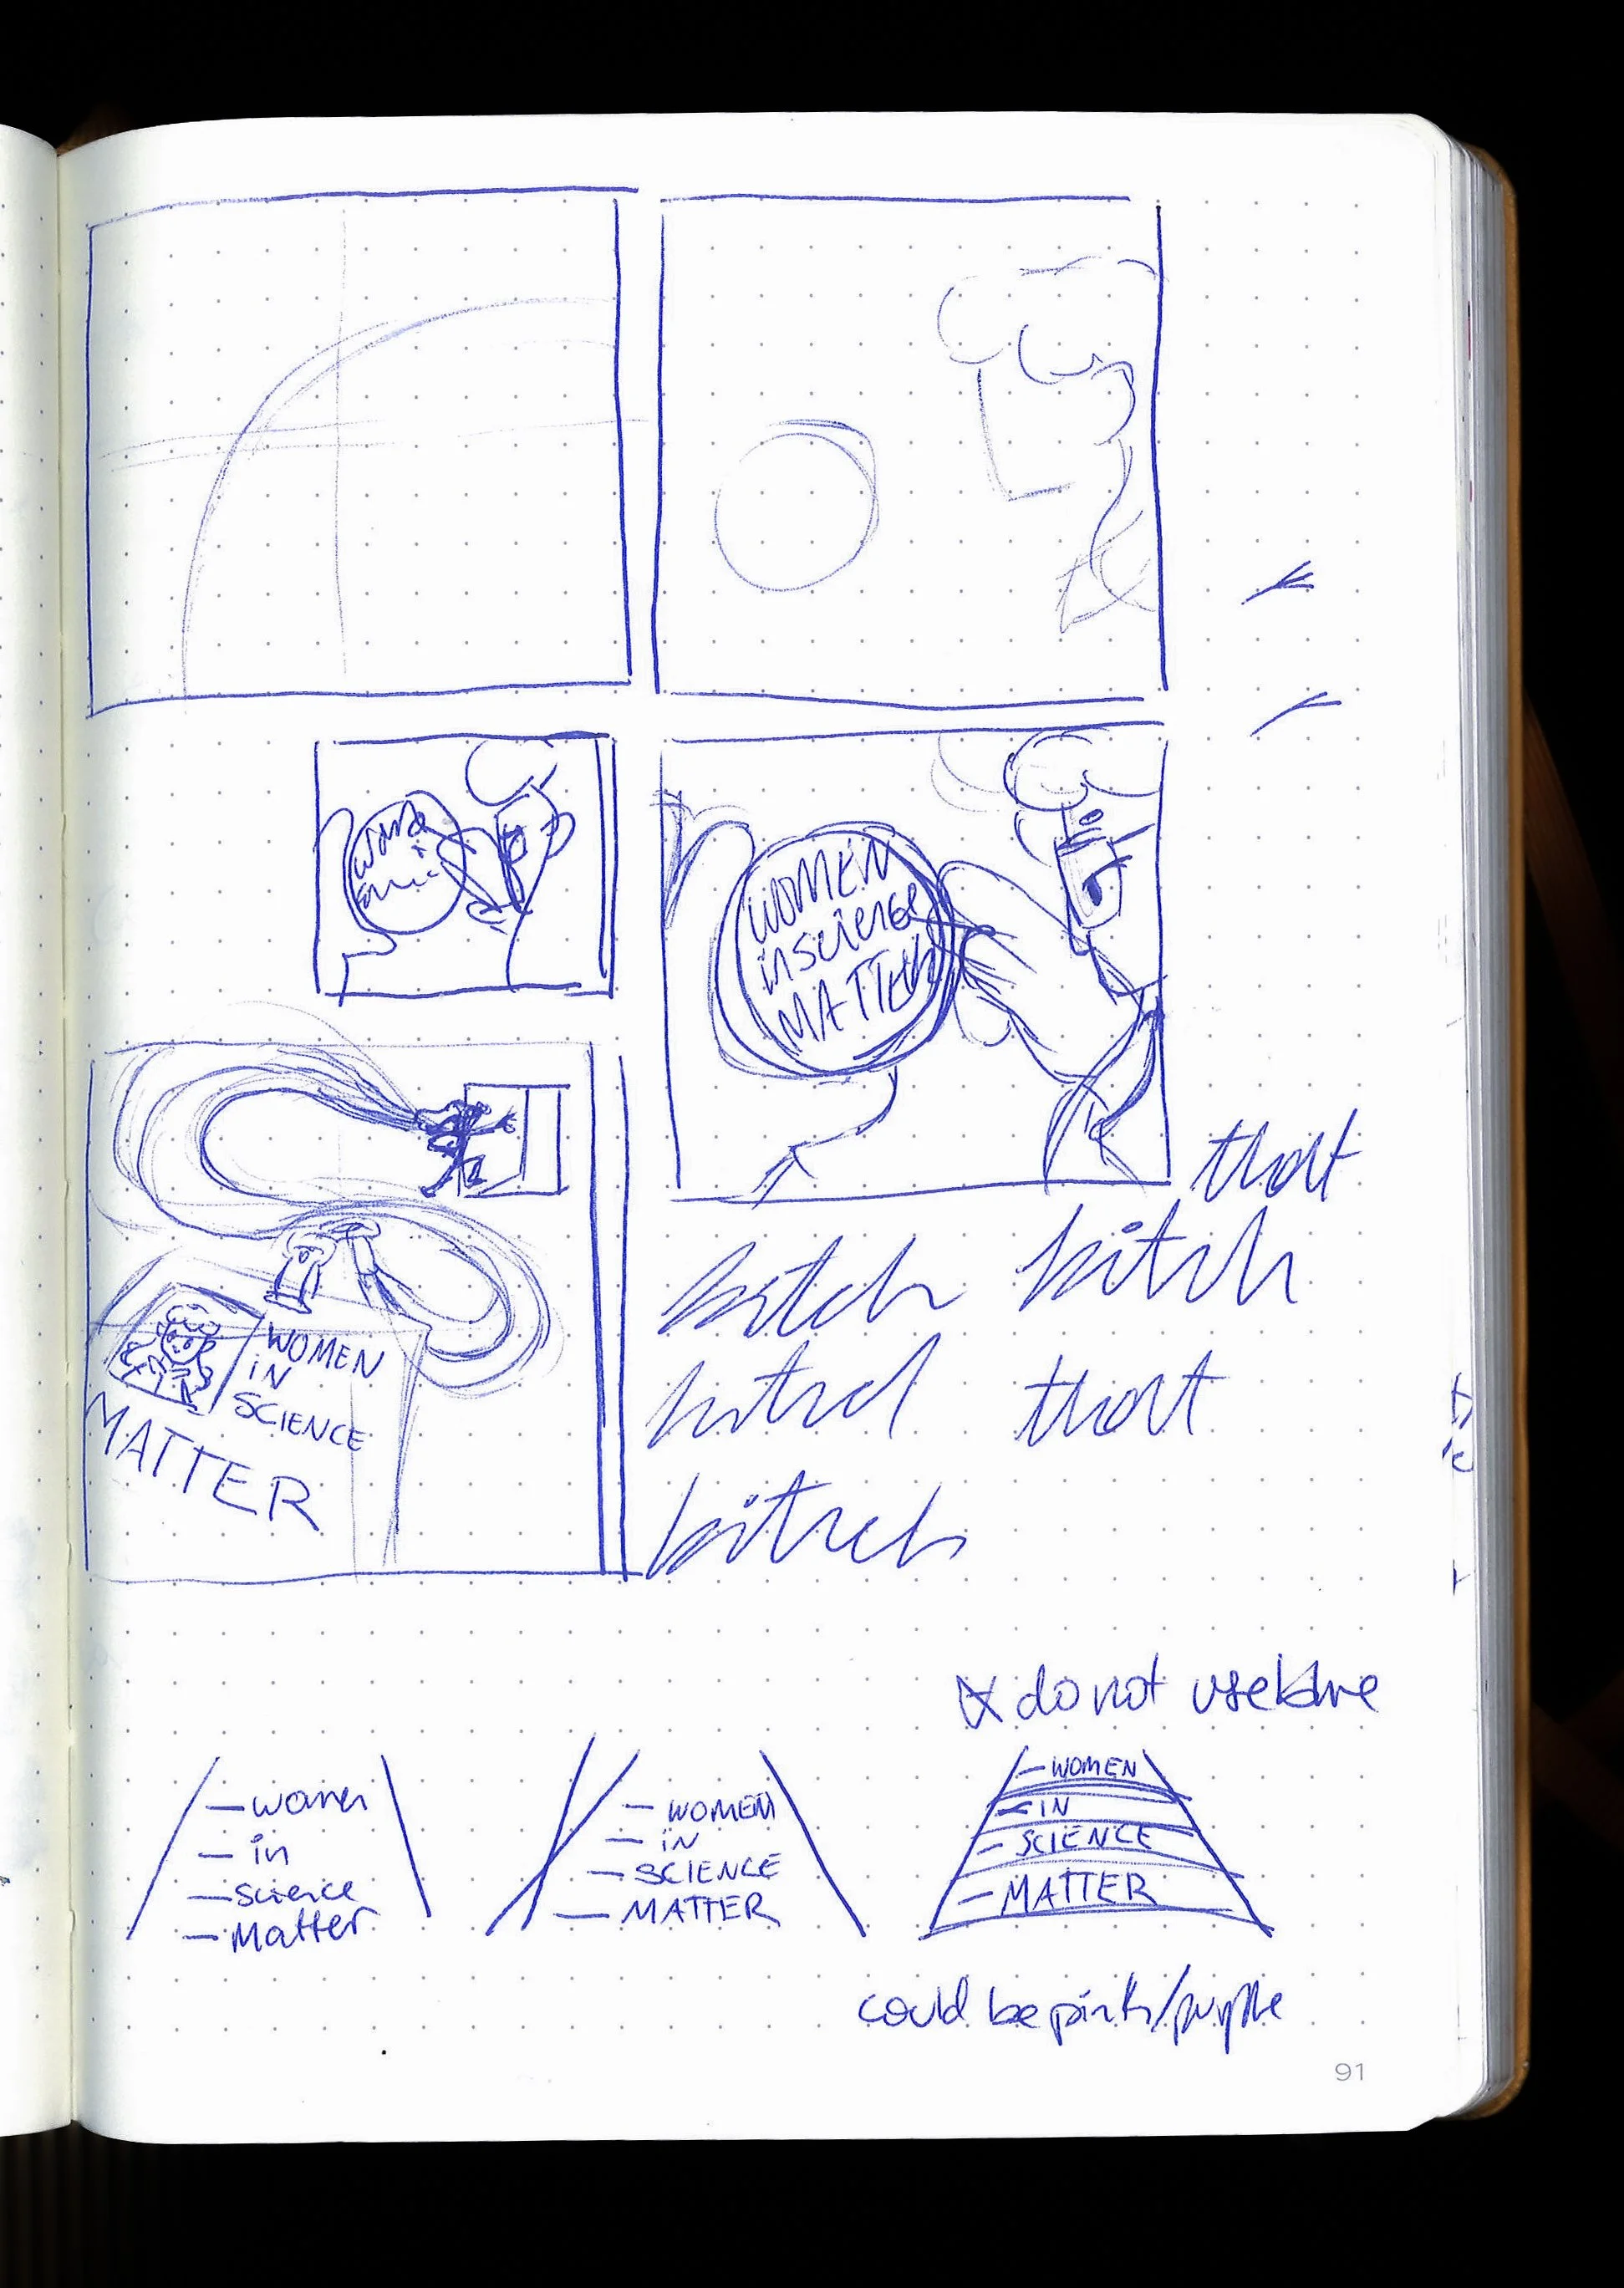 WOMEN
in science
MATTER
that
bitch
bitch
that
bitch
WOMEN
IN
SCIENCE
MATTER
do not use blue
women
in
science
Matter
WOMEN
in
SCIENCE
MATTER
WOMEN
IN
SCIENCE
MATTER
could be pink/purple
91